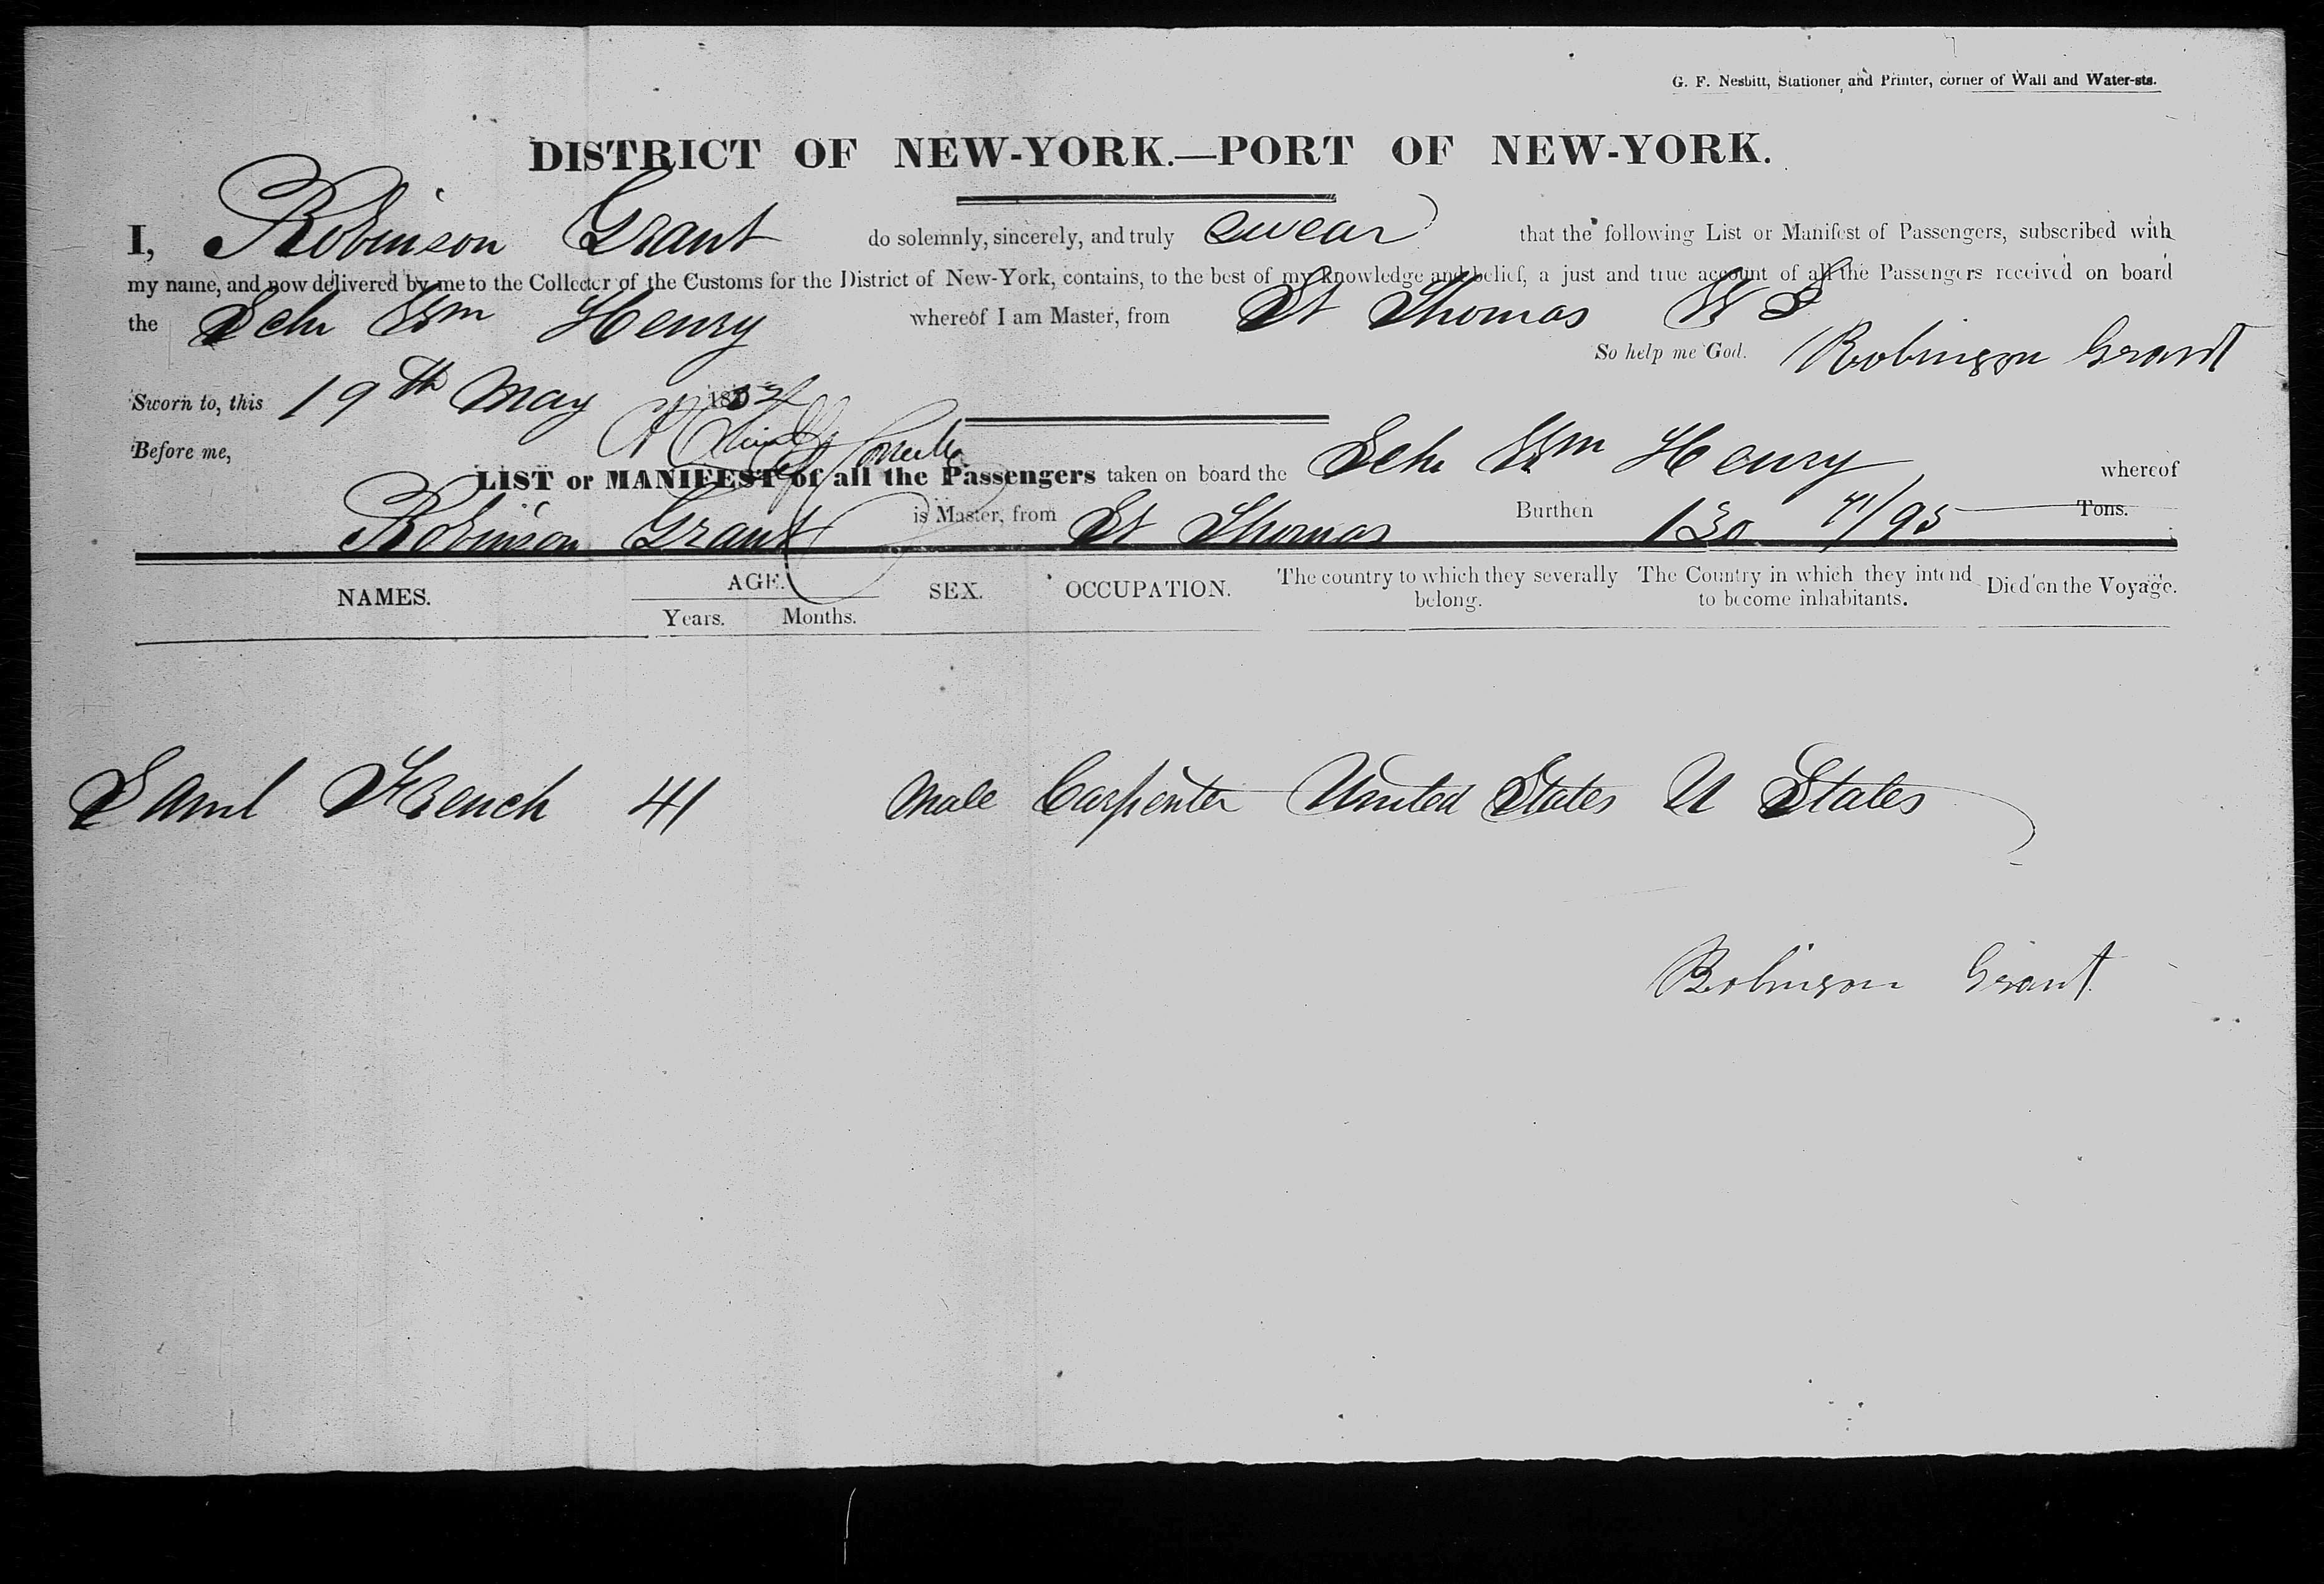 G. F. Nesbitt, Stationer and Printer, corner of Wall and Water-sts.
DISTRICT OF NEW-YORK.—PORT OF NEW-YORK.
I, Robinson Grant do solemnly, sincerely, and truly swear that the following List or Manifest of Passengers, subscribed with
my name, and now delivered by me to the Collector of the Customs for the District of New-York, contains, to the best of my knowledge and belief, a just and true account of all the Passengers received on board
the Schr Wm Henry whereof I am Master, from St Thomas W I
So help me God. Robinson Grant
Sworn to, this 19th May
Before me,
LIST or MANIFEST of all the Passengers taken on board the Schr Wm Henry whereof
Robinson Grant is Master, from St Thomas Burthen 130 71/95 Tons.
NAMES. AGE. SEX. OCCUPATION. The country to which they severally belong. The Country in which they intend to become inhabitants. Died on the Voyage.
Years. Months.
Saml French 41 Male Carpenter United States U States
Robinson Grant